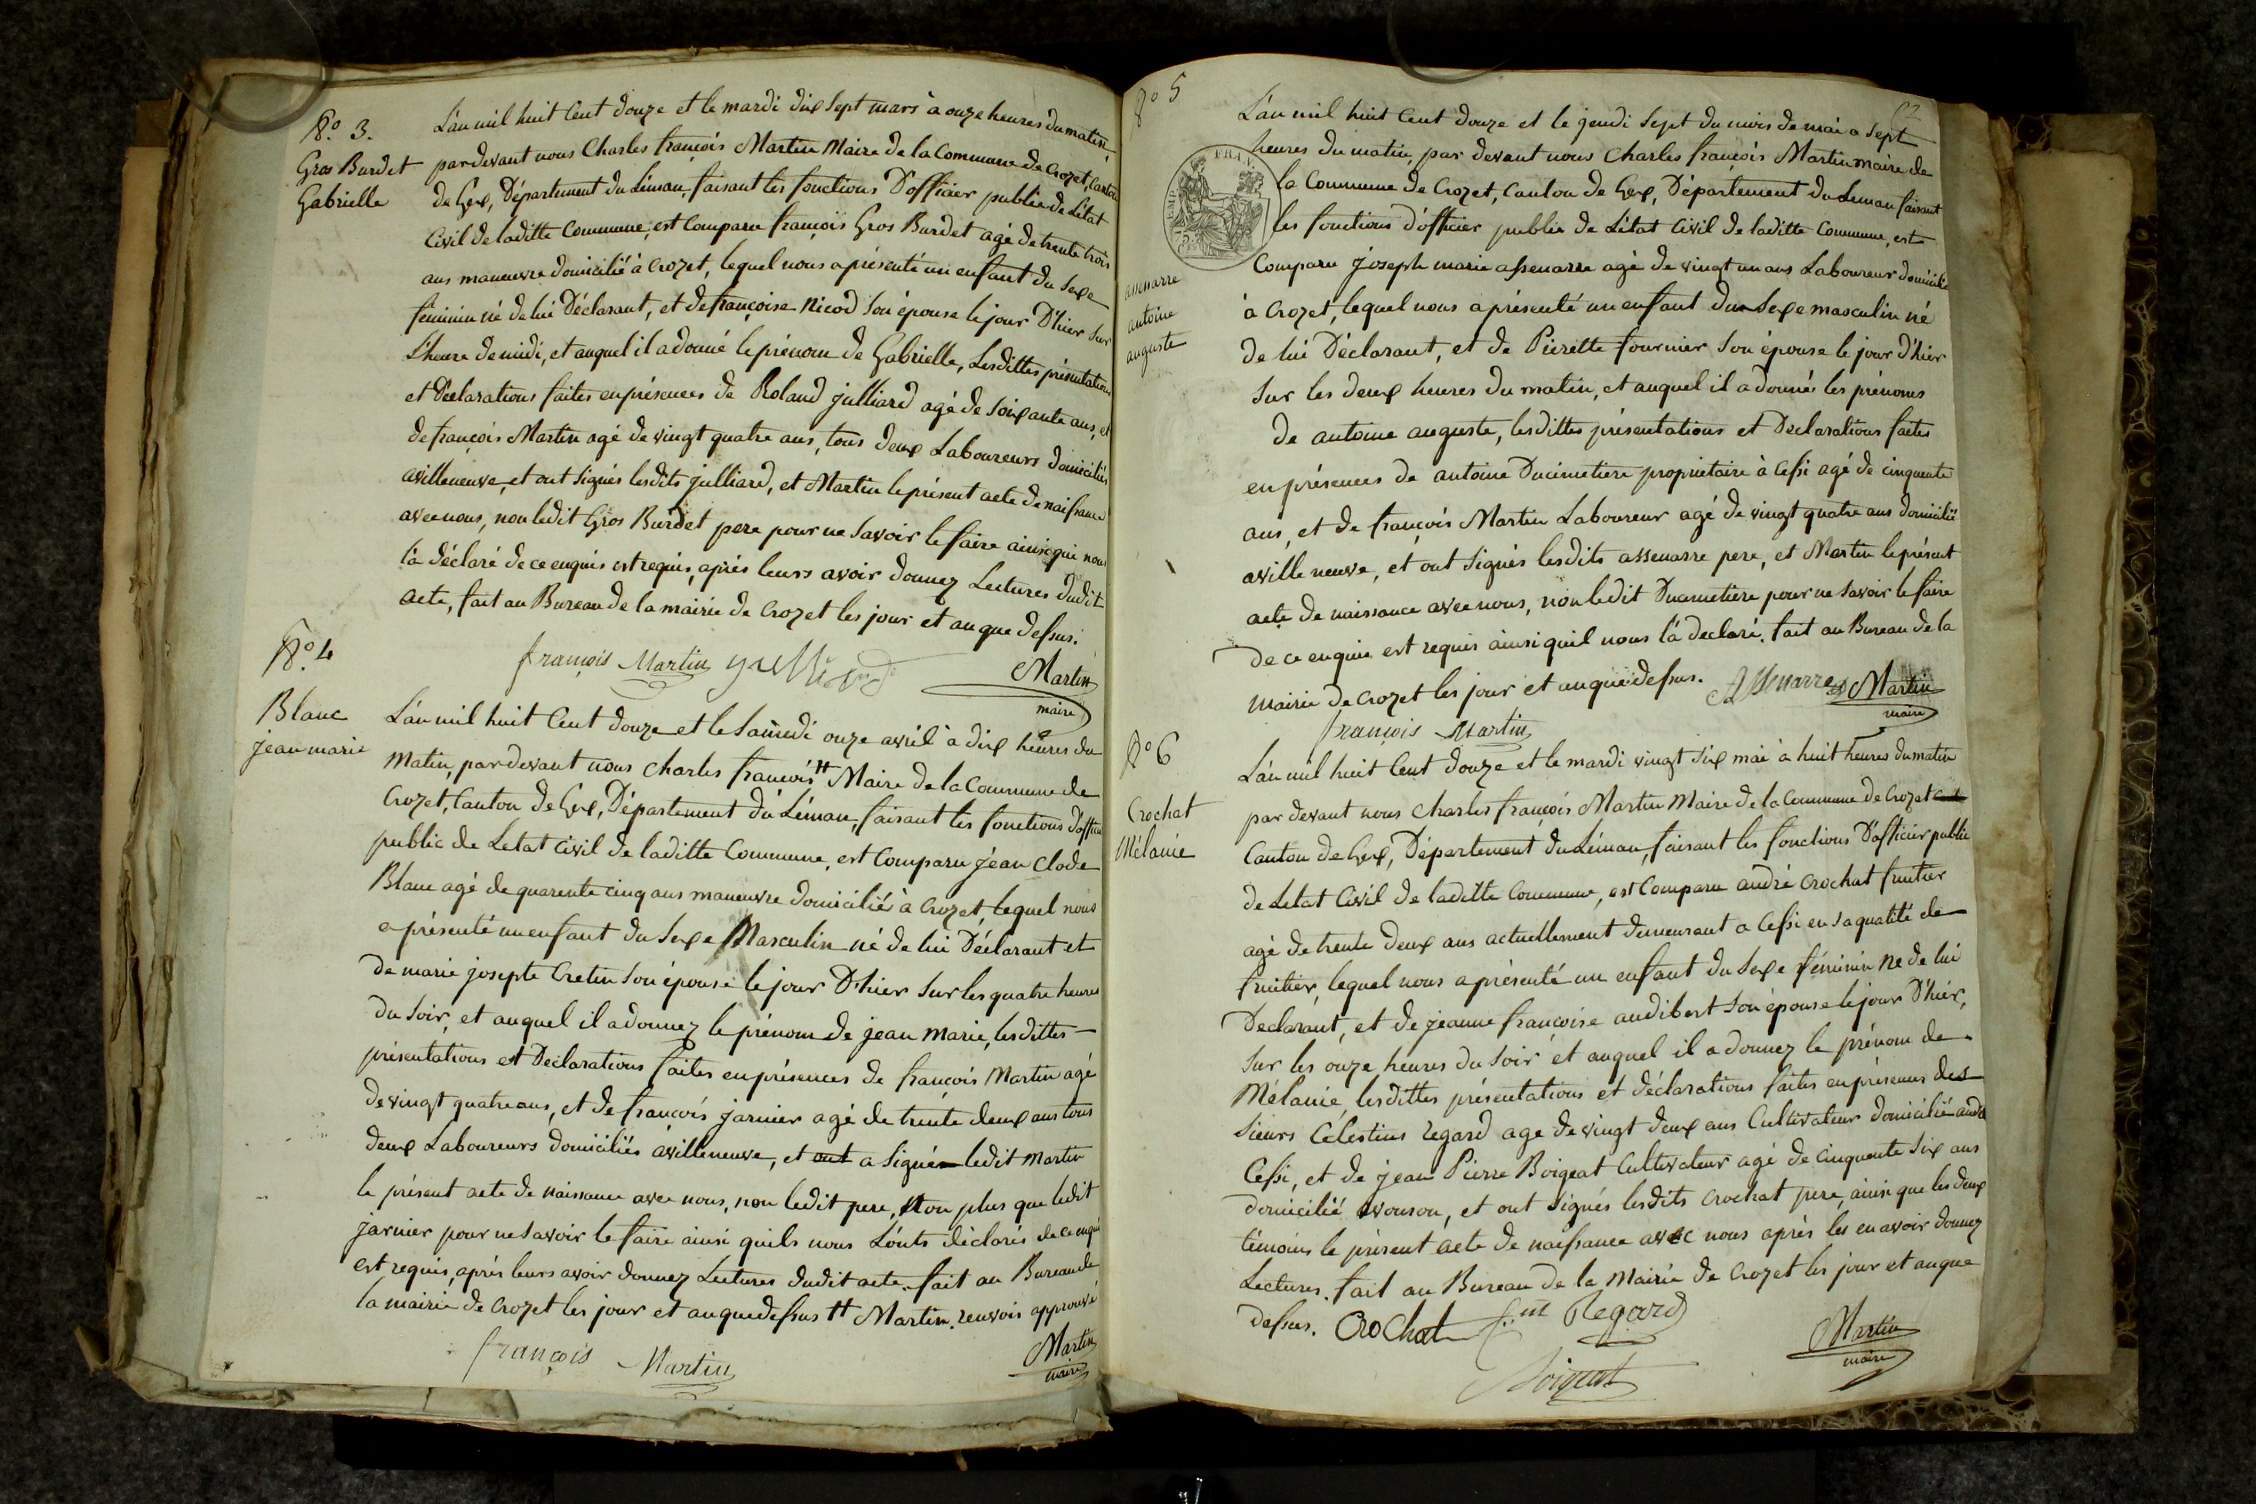 N.º 3.
Gros Burdet
Gabrielle
L'án mil huit Cent douze et le mardi dix sept mars à onze heures du matin,
pardevant nous Charles françois Martin Maire de la Commune de Crozet, Canton
de Gex, Département du Léman, faisant les fonctions D'officier public de L'état
Civil de laditte Commune, est Comparu françois Gros Burdet agé de trente trois
ans manœuvre domicilié à Crozet, lequel nous a présenté un enfant du Sexe
feminin né de lui Déclarant, et de françoise Nicod Son épouse le jour D'hier Sur
L'heure de midi, et auquel il a donné le prénom de Gabrielle, Lesdittes présentations
et Déclarations faites en présences de Roland julliard agé de Soixante ans, et
de françois Martin agé de vingt quatre ans, tous deux Laboureurs domiciliés
avilleneuve, et ont Signés lesdits julliard, et Martin le présent acte de naissance
avec nous, non ledit Gros Burdet pere pour ne Savoir le faire ainsi qui nous
l'á déclaré de ce enquis est requis, aprés leurs avoir donnez Lectures dudit
acte, fait au Bureau de la mairie de Crozet les jour et an que dessus.
françois Martin julliard Martin
maire
N.º 4
Blanc
jean marie
L'án mil huit Cent douze et le Samedi onze avril à dix heures du
Matin, pardevant nous Charles françois ++ Maire de la Commune de
Crozet, Canton de Gex, Département du Léman, faisant les fonctions D'officier
public de Letat Civil de laditte Commune, est Comparu jéan Clode
Blanc agé de quarente cinq ans manœuvre domicilié à Crozet, lequel nous
a présenté un enfant du Sexe Masculin né de lui Déclarant et
de marie josepte Cretin Son épouse le jour D'hier Sur les quatre heures
du Soir, et auquel il a donnez le prénom de jean Marie, lesdittes
présentations et Déclarations faites en présences de françois Martin agé
de vingt quatre ans, et de françois jarnier agé de trente deux ans tous
deux Laboureurs domiciliés avilleneuve, et ont a Signé ledit Martin
le présent acte de naissance avec nous, non ledit pere, Non plus que ledit
jarnier pour ne Savoir le faire ainsi quils nous L'onts déclarés de ce enquis
est requis, aprés leurs avoir donnez Lectures dudit acte. fait au Bureau de
la mairie de Crozet les jour et an que dessus ++ Martin. renvois approuvé
françois Martin Martin
maire
Nº 5
assenarre
antoine
auguste
L'án mil huit Cent douze et le jeudi Sept du mois de mai a Sept
heures du matin, par devant nous Charles françois Martin maire de
la Commune de Crozet, Canton de Gex, Département du Leman faisant
les fonctions d'officier public de L'état Civil de laditte Commune, est
Comparu joseph marie assenarre agé de vingt un ans Laboureur domicilié
à Crozet, lequel nous a présenté un enfant du Sexe masculin né
de lui Déclarant, et de Pierette fournier Son épouse le jour d'hier
Sur les deux heures du matin, et auquel il a donnés les prénoms
de antoine auguste, lesdittes présentations et Declarations faites
en présences de antoine Ducimetiere propriétaire à Cessi agé de cinquente
ans, et de françois Martin Laboureur agé de vingt quatre ans domicilié
aville neuve, et ont Signés lesdits assenarre pere, et Martin le présent
acte de naissance avec nous, non ledit Ducimetiere pour ne Savoir le faire
de ce enquie est requis ainsi quil nous l'á declaré. fait au Bureau de la
mairie de Crozet les jour et an que dessus. Assenarre Martin
maire
françois Martin
Nº 6
Crochat
Mélanie
L'án mil huit Cent douze et le mardi vingt Six mai à huit heures du matin
par devant nous Charles françois Martin Maire de la Commune de Crozet
Canton de Gex, Département du Léman, faisant les fonctions D'officier public
de Letat Civil de laditte Commune, est Comparu andré Crochat fruitier
agé de trente deux ans actuellement demeurant a Cessi en Sa qualité de
fruitier, lequel nous a présenté un enfant du Sexe féminin né de lui
Declarant, et de jeanne françoise audibert Son épouse le jour D'hier,
Sur les onze heures du Soir et auquel il a donnez le prénom de
Mélanie, lesdittes présentations et déclarations faites en présences des
Sieurs Célestins regard age de vingt deux ans Cultivateur domicilié audit
Cessi, et de jean Pierre Boigeat Cultivateur agé de Cinquente Six ans
domicilié avouson, et ont Signés lesdits Crochat pere, ainsi que les deux
témoins le présent acte de naissance avec nous aprés les en avoir donnez
Lectures. fait au Bureau de la Mairie de Crozet les jour et an que
dessus. Crochat Regard Martin
maire
Boigeat